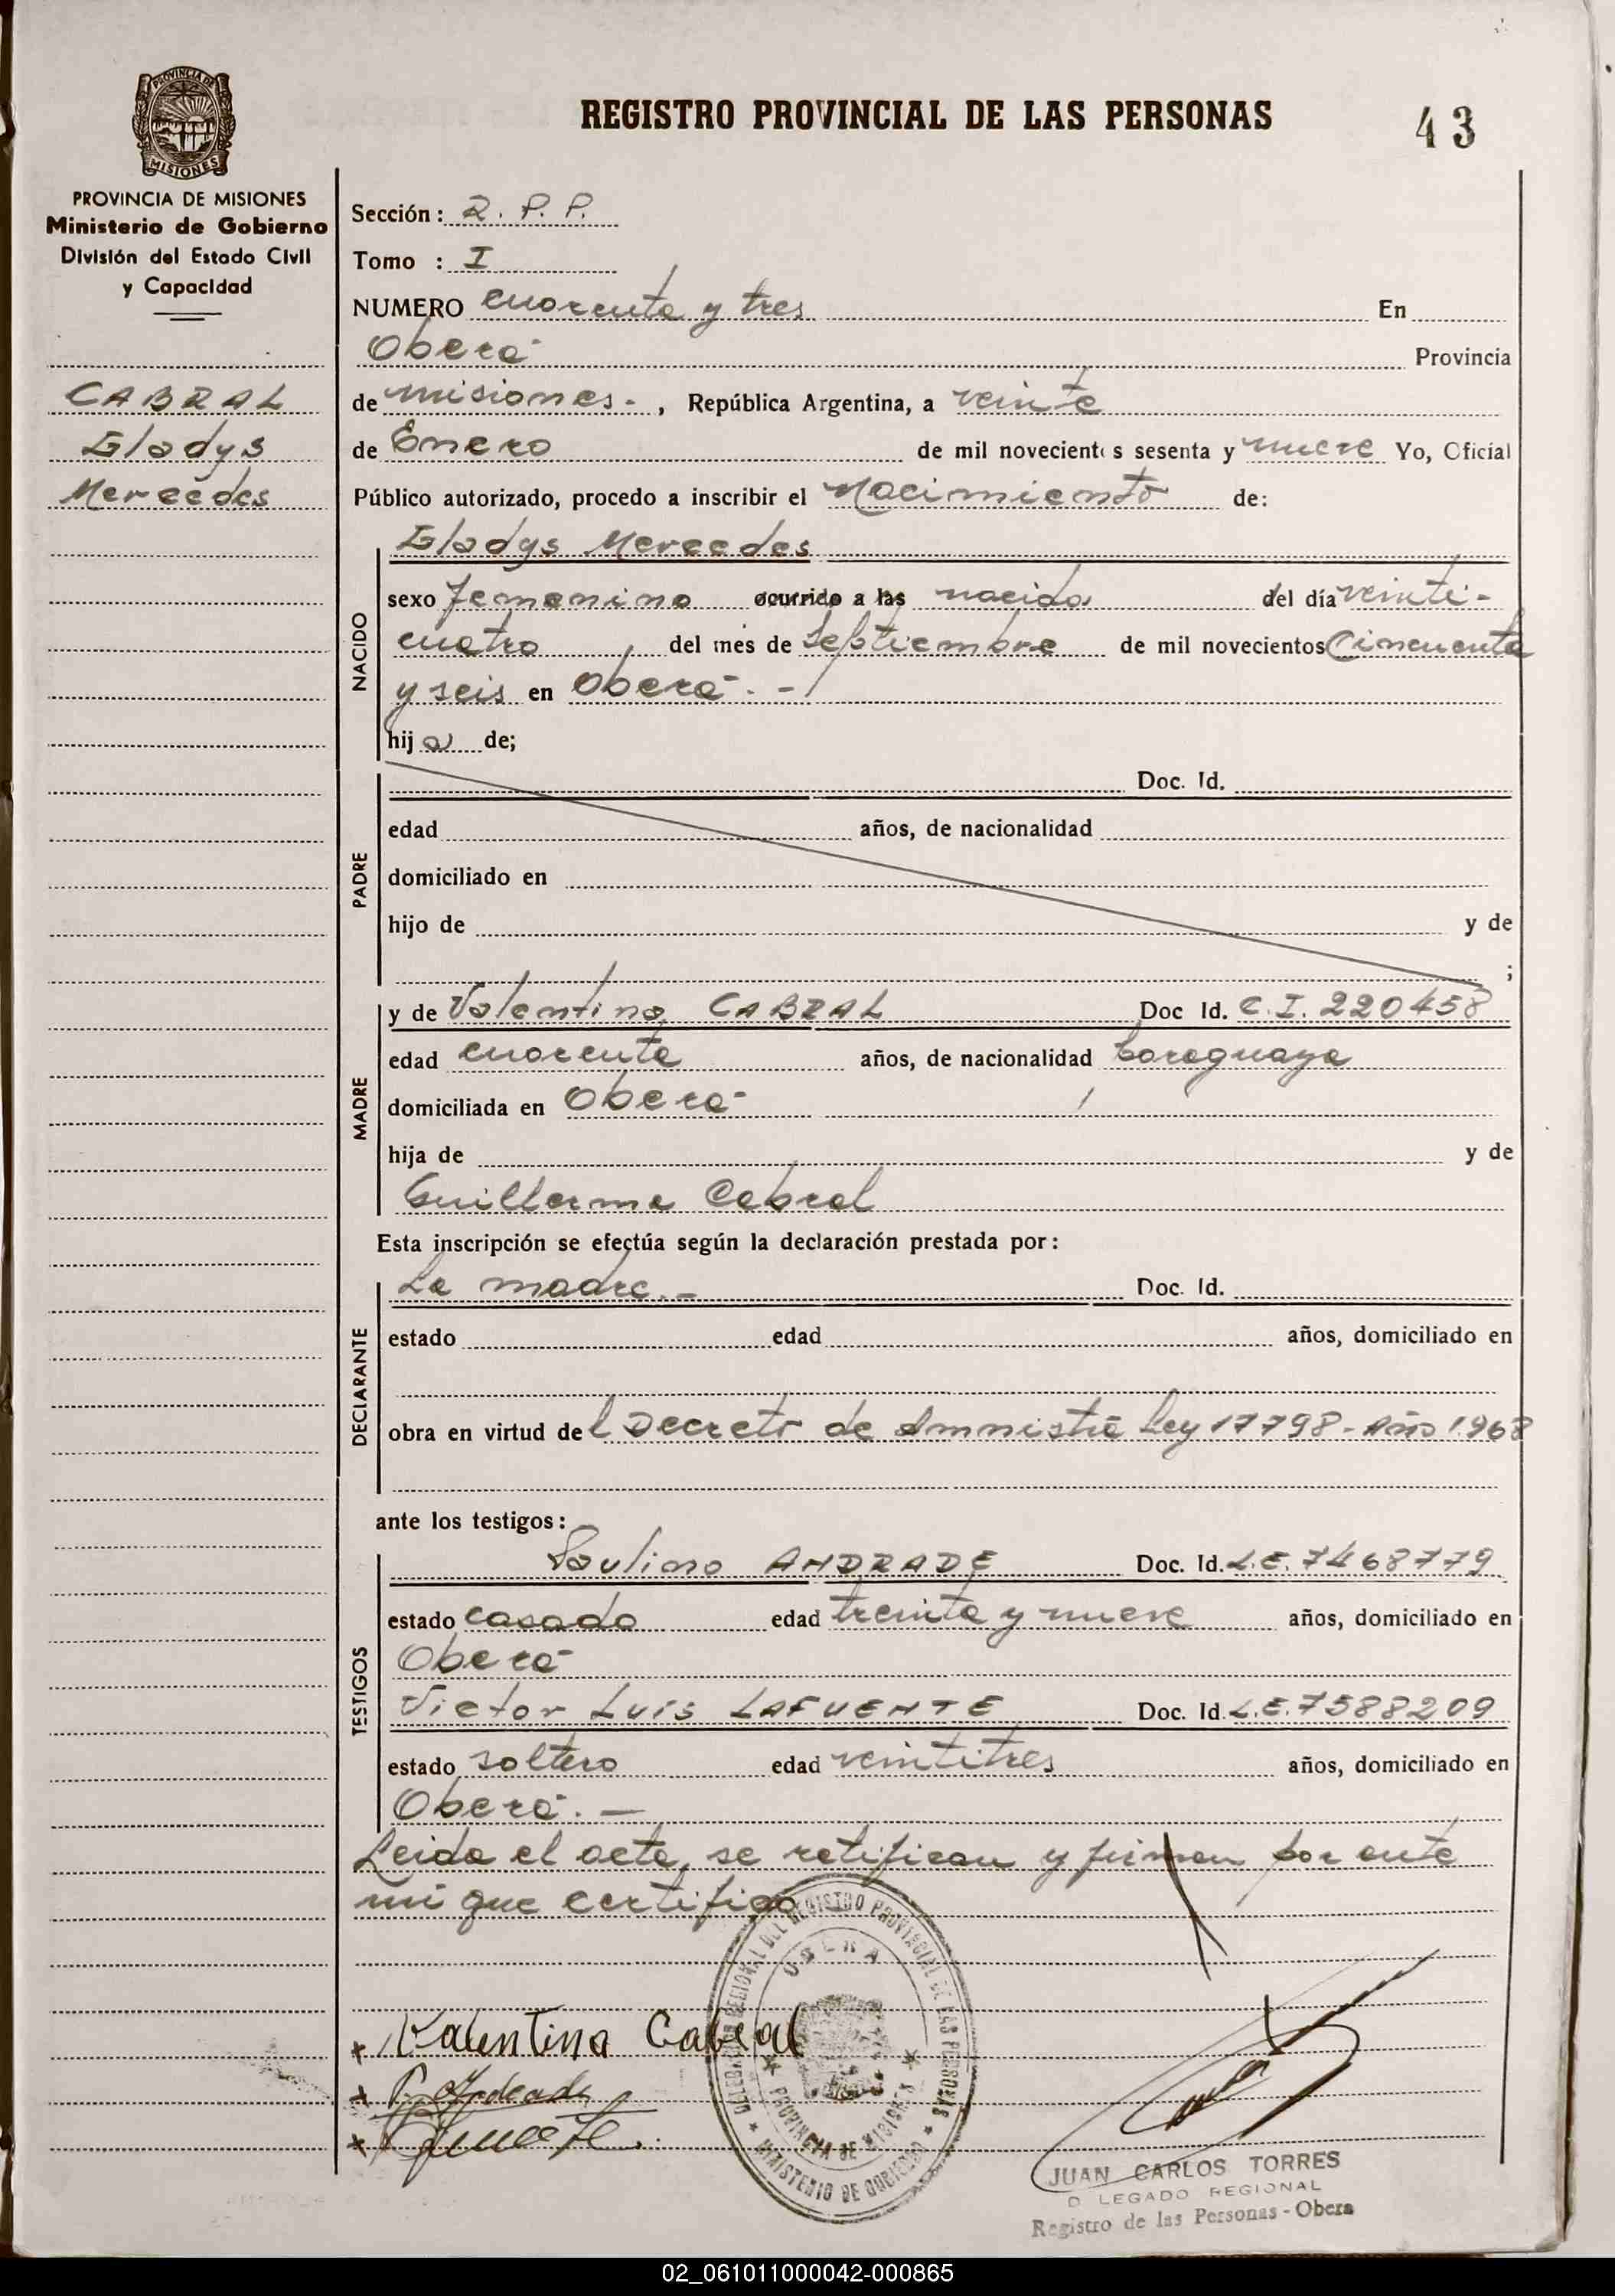 REGISTRO PROVINCIAL DE LAS PERSONAS
43
PROVINCIA DE MISIONES
PROVINCIA DE MISIONES
Ministerio de Gobierno
División del Estado Civil
y Capacidad
CABRAL
Gladys
Mercedes
Sección: 2. P. P.
Tomo : I
NUMERO cuarenta y tres En
Oberá Provincia
de misiones.-, República Argentina, a veinte
de Enero de mil novecientos sesenta y nueve Yo, Oficial
Público autorizado, procedo a inscribir el Nacimiento de:
NACIDO
Gladys Mercedes
sexo femenino ocurrido a las nacida del día veinti-
cuatro del mes de Septiembre de mil novecientos Cincuenta
y seis en Oberá.-
hija de;
PADRE
Doc. Id.
edad años, de nacionalidad
domiciliado en
hijo de y de
;
MADRE
y de Valentina CABRAL Doc Id. C.I. 220458
edad cuarenta años, de nacionalidad paraguaya
domiciliada en Oberá
hija de y de
Guillerma Cabral
Esta inscripción se efectúa según la declaración prestada por:
DECLARANTE
La madre.- Doc. Id.
estado edad años, domiciliado en
obra en virtud del Decreto de Amnistía Ley 17798-Año 1968
ante los testigos:
TESTIGOS
Paulino ANDRADE Doc. Id. L.E. 7468779
estado casado edad treinta y nueve años, domiciliado en
Oberá
Victor Luis LAFUENTE Doc. Id. L.E. 7588209
estado soltero edad veintitres años, domiciliado en
Oberá.-
Leida el acta, se ratifican y firman por ante
mi que certifico
DELEGACION REGIONAL DEL REGISTRO PROVINCIAL DE LAS PERSONAS
OBERA
PROVINCIA DE MISIONES
MINISTERIO DE GOBIERNO
x Valentina Cabral
x P. Andrade
x
JUAN CARLOS TORRES
D LEGADO REGIONAL
Registro de las Personas - Obera
02_061011000042-000865